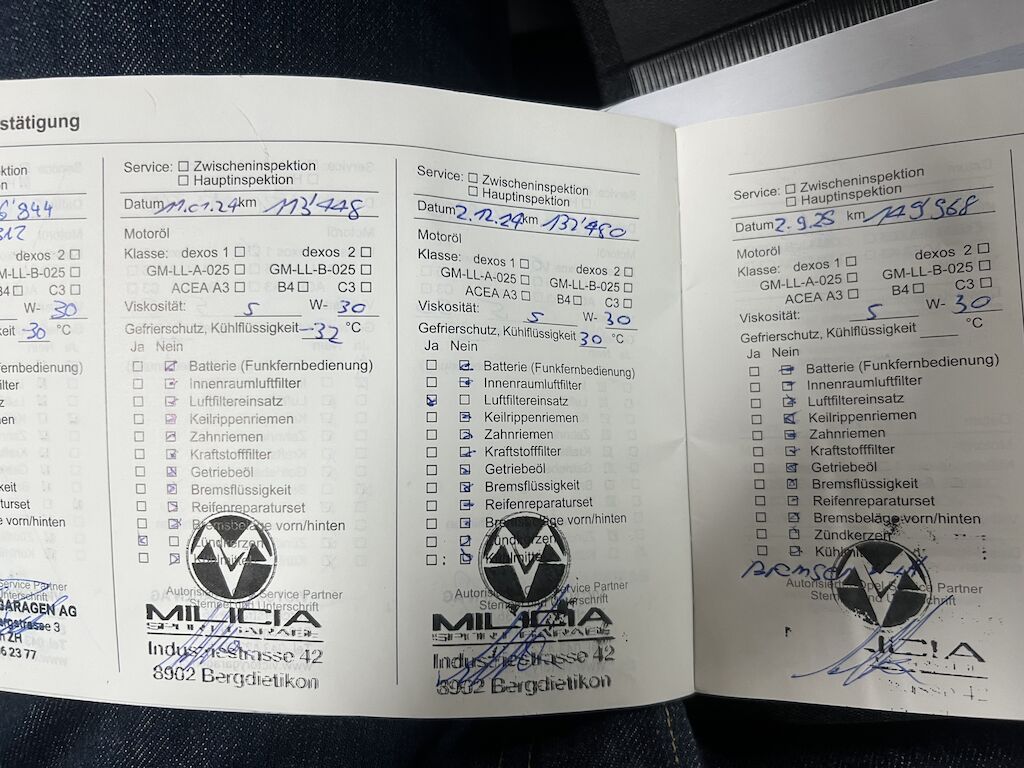 stätigung
ktion
n
6'844
312
dexos 2
GM-LL-B-025
B4 C3
W- 30
keit -30 °C
enbedienung)
filter
tz
men
keit
turset
orn/hinten
Service Partner
GARAGEN AG
rgstrasse 3
ZH
6 23 77
Service: Zwischeninspektion
Hauptinspektion
Datum 11.01.24 km 113'448
Motoröl
Klasse: dexos 1 dexos 2
GM-LL-A-025 GM-LL-B-025
ACEA A3 B4 C3
Viskosität: 5 W- 30
Gefrierschutz, Kühlflüssigkeit -32 °C
Ja Nein
Batterie (Funkfernbedienung)
Innenraumluftfilter
Luftfiltereinsatz
Keilrippenriemen
Zahnriemen
Kraftstofffilter
Getriebeöl
Bremsflüssigkeit
Reifenreparaturset
Bremsbeläge vorn/hinten
Zündkerzen
Kühlmittel
Autorisierter Opel Service Partner
Stempel und Unterschrift
MILICIA
SPORTGARAGE
Industriestrasse 42
8902 Bergdietikon
Service: Zwischeninspektion
Hauptinspektion
Datum 2.12.24 km 132'480
Motoröl
Klasse: dexos 1 dexos 2
GM-LL-A-025 GM-LL-B-025
ACEA A3 B4 C3
Viskosität: 5 W- 30
Gefrierschutz, Kühlflüssigkeit 30 °C
Ja Nein
Batterie (Funkfernbedienung)
Innenraumluftfilter
Luftfiltereinsatz
Keilrippenriemen
Zahnriemen
Kraftstofffilter
Getriebeöl
Bremsflüssigkeit
Reifenreparaturset
Bremsbeläge vorn/hinten
Zündkerzen
Kühlmittel
Autorisierter Opel Service Partner
Stempel und Unterschrift
MILICIA
SPORTGARAGE
Industriestrasse 42
8902 Bergdietikon
Service: Zwischeninspektion
Hauptinspektion
Datum 2.9.25 km 149'968
Motoröl
Klasse: dexos 1 dexos 2
GM-LL-A-025 GM-LL-B-025
ACEA A3 B4 C3
Viskosität: 5 W- 30
Gefrierschutz, Kühlflüssigkeit °C
Ja Nein
Batterie (Funkfernbedienung)
Innenraumluftfilter
Luftfiltereinsatz
Keilrippenriemen
Zahnriemen
Kraftstofffilter
Getriebeöl
Bremsflüssigkeit
Reifenreparaturset
Bremsbeläge vorn/hinten
Zündkerzen
Kühlmittel
Autorisierter Opel Service Partner
Stempel und Unterschrift
ICIA
sse 42